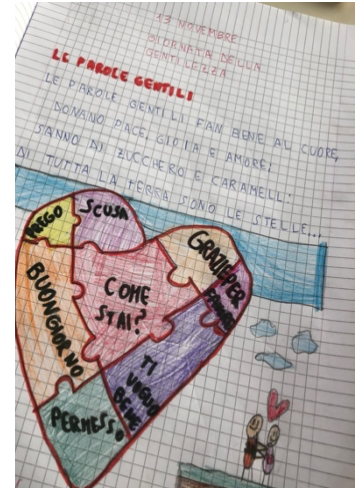 13 NOVEMBRE
GIORNATA DELLA
GENTILEZZA
LE PAROLE GENTILI
LE PAROLE GENTILI FAN BENE AL CUORE,
DONANO PACE, GIOIA E AMORE!
SANNO DI ZUCCHERO E CARAMELL:
DI TUTTA LA TERRA SONO LE STELLE...
PREGO
SCUSA
GRAZIE
PER
FAVORE
BUONGIORNO
COME
STAI?
TI
VOGLIO
BENE
PERMESSO